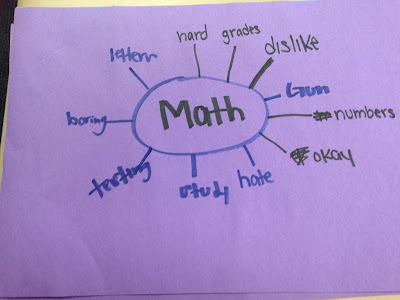 hard
grades
dislike
numbers
okay
hate
study
testing
boring
letters
Math